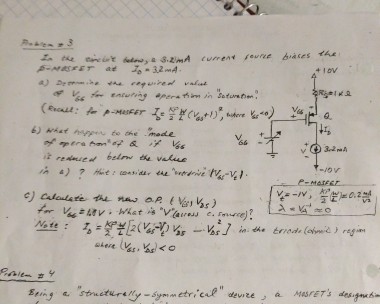 Problem # 3
In the circuit below, a 3.2mA current source biases the
p-MOSFET at I_D = 3.2mA.
a) Determine the required value
of V_GG for ensuring operation in "saturation".
(Recall: for p-MOSFET I_D = KP/2 W/L (V_GS+1)², where V_GS<0)
b) What happens to the "mode
of operation" of Q if V_GG
is reduced below the value
in a) ? Hint: consider the "overdrive" (V_GS-V_t).
c) Calculate the new O.P. (V_GS, V_DS)
for V_GG = 1.8V. What is "V" (across c. source)?
Note: I_D = KP/2 W/L [2(V_GS-V_t) V_DS - V_DS²] in the triode (ohmic) region
where (V_GS, V_DS) < 0
+10V
R_S=1kΩ
V_GG
V_GS
Q
I_D
3.2mA
-10V
P-MOSFET
V_t = -1V, KP/2 (W/L) = 0.2 mA/V²
λ = V_A⁻¹ ≈ 0
Problem # 4
Being a "structurally-symmetrical" device, a MOSFET's designation